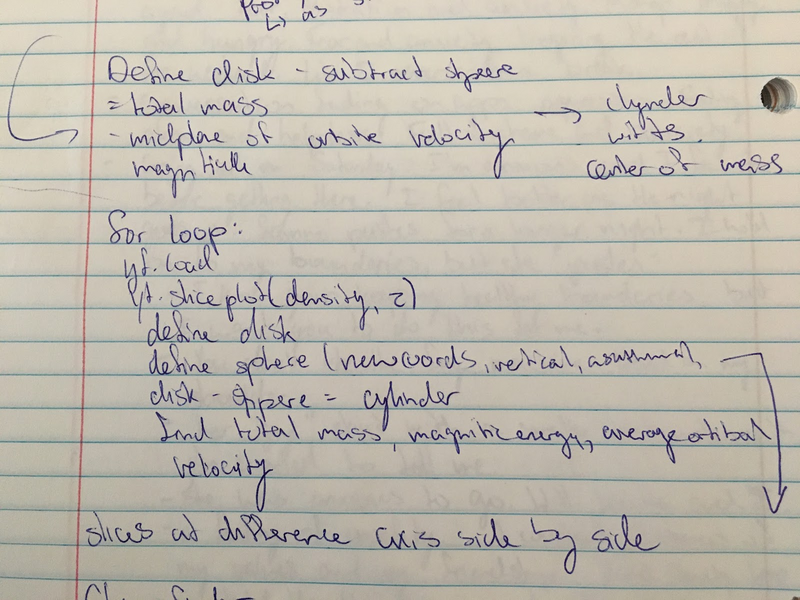 ↳ as
Define disk - subtract spere
= total mass
- midplae of orbite velocity → clynder
magntitude with
center of mass
for loop:
yt.load
yt.sliceplot(density, z)
define disk
define sphere (newcoords, vertical,
disk - sppere = cylinder
find total mass, magnitic energy, average orbital
velocity
slices at difference axis side by side